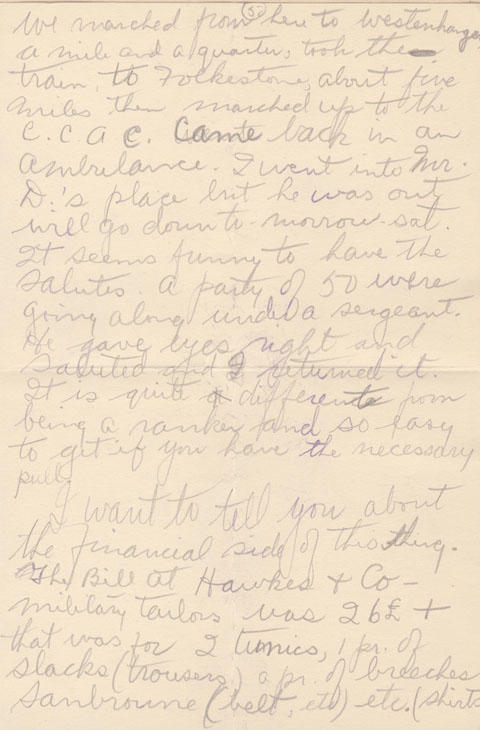 (5)
we marched from here to Westenhanger
a mile and a quarter, took the
train, to Folkestone, about five
miles then marched up to the
C.C.A.C. Came back in an
ambulance. I went into Mr.
D.'s place but he was out
will go down to-morrow-sat.
It seems funny to have the
salutes. a party of 50 were
going along under a sergeant.
He gave eyes right and
saluted and I returned it.
It is quite different from
being a ranker and so easy
to get if you have the necessary
pull.
I want to tell you about
the financial side of this thing.
The Bill at Hawkes + Co -
military tailors was 26£ +
that was for 2 tunics, 1 pr. of
slacks (trousers) a pr. of breeches
Sanbroune (belt, etc) etc. (shirts